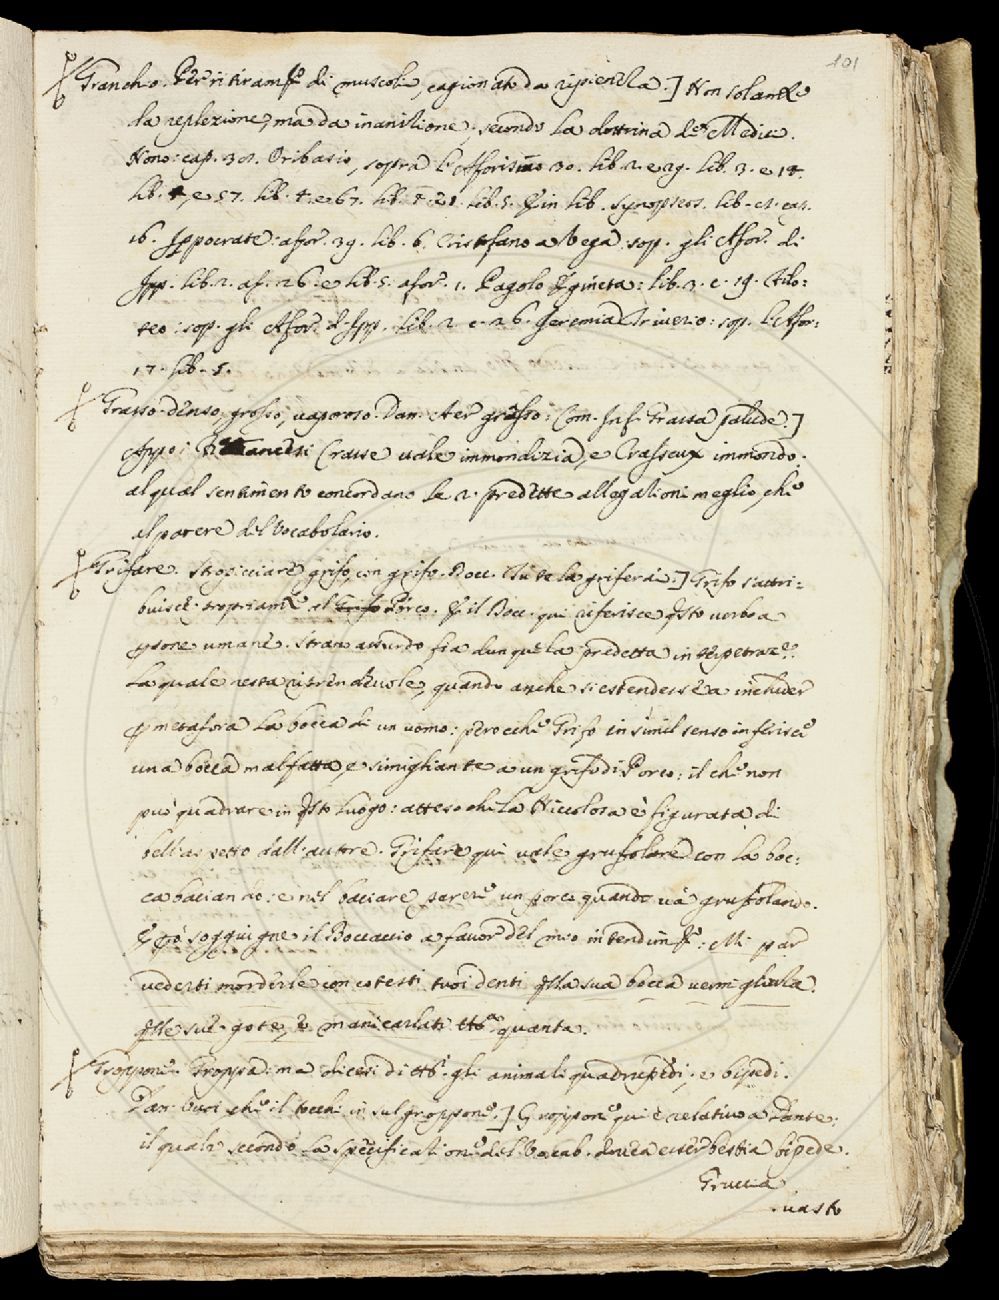 101
Granchio. Per ritiram.to di muscolo, cagionato da ripienezza.] Non solam.te
da replezione, ma da inanizione, secondo la dottrina de Medici.
Nono: cap. 302. Oribasio, sopra l'Aforismo 30. lib. 2. e 29. lib. 3. e 17.
lib. 4, e 57. lib. 4. e 67. lib. 5. lib. 5. Et in lib. Synopseos. lib.
16. Ippocrate: afor. 39. lib. 6. Cristofano a Vega sop. gli Afor. di
Ipp. lib. 2. af. 26. e lib. 5. afor. 1. Pagolo Egineta: lib. 3. c. 19. Filo:
teo: sop. gli Afor. d'Ipp. lib. 2. e. 26. Jeremia Triverio: sop. l'Afor:
17. lib. 5.
Grasso. denso, grosso, vaporoso. Dan. Aer grasso: Com. Inf. Grassa palude.]
Appo i Francesi Crasse vale immondizia, e Crasseux immondo.
al qual sentimento concordano le 2. predette allegazioni meglio, che
al parere del Vocabolario.
Grifare. Stropicciare grifo con grifo. Bocc. Tu te la griferai.] Grifo s'attri:
buisce propriam.te al Porco. Et il Bocc. qui riferisce q.sto verbo a
p.sone umane. Strano assurdo fia dunque la predetta
La quale resta riprendevole, quando anche si estendesse a includer
p metafora la bocca di un uomo: perocche Grifo in simil senso inferisce
una bocca malfatta, e simigliante a un grifo di Porco: il che non
può quadrare in q.sto luogo: atteso che la Niccolosa è figurata di
bell'aspetto dall'autore. Grifare qui vale grufolare con la boc:
ca baciando: e nel baciare parere un porco quando và grufolando.
E p.ò soggiugne il Boccaccio a favor del mio intendim.to: Mi par
vederti morderle con cotesti tuoi denti q.lla sua bocca vermigliuzza
q.lle sue gote, manicarlati quanta.
Groppone. Groppa: ma dicesi di gli animali quadrupedi, e bipedi.
Dan. Vuoi che il tocchi in sul groppone.] Groppone qui è relativo a Dante:
il quale secondo la specificazione del Vocab. dovea esser bestia bipede.
Gruccia